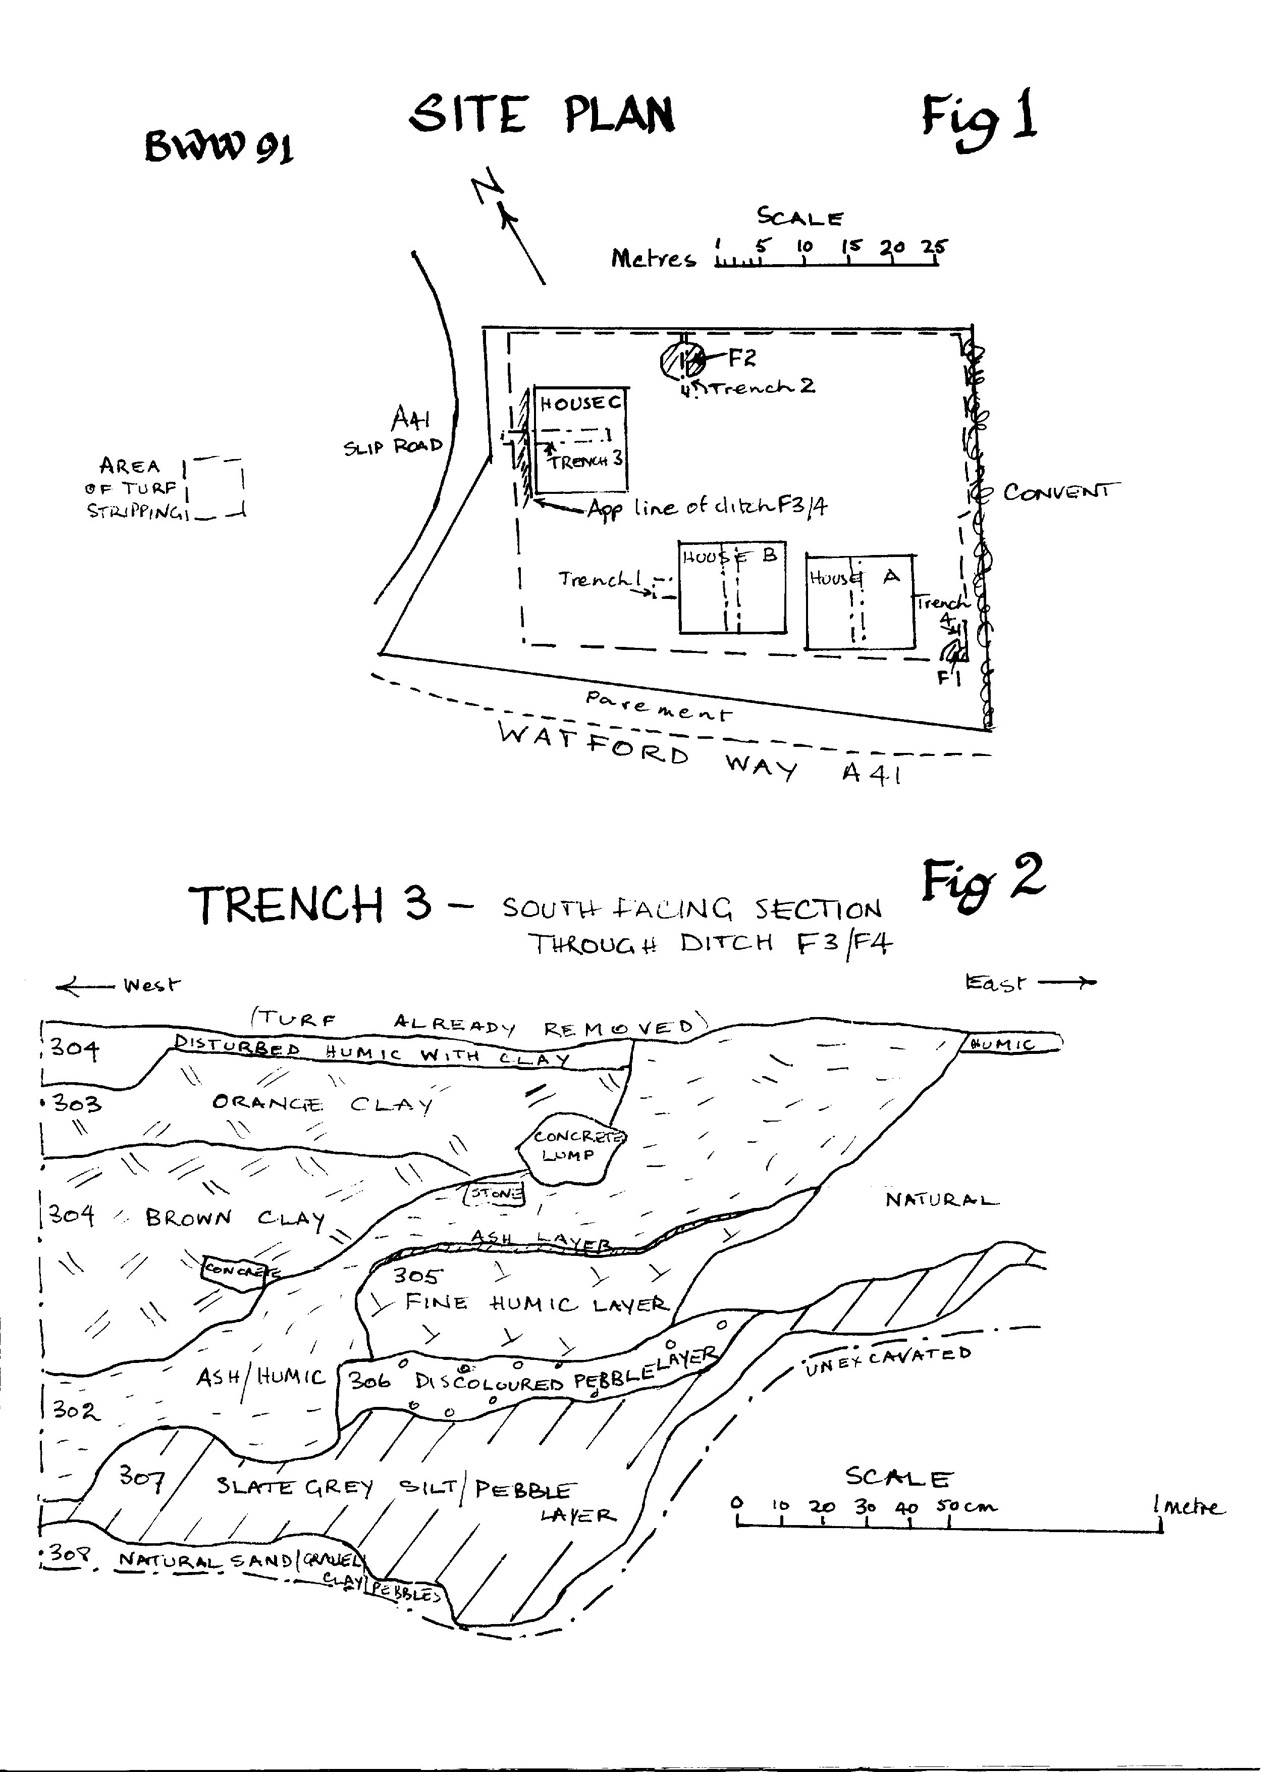 SITE PLAN
Fig 1
BWW 91
N
SCALE
Metres 1 5 10 15 20 25
F2
Trench 2
HOUSE C
A41
SLIP ROAD
TRENCH 3
AREA
OF TURF
STRIPPING
CONVENT
App line of ditch F3/4
HOUSE B
HOUSE A
Trench 1
Trench
4
F1
Pavement
WATFORD WAY A41
Fig 2
TRENCH 3 – SOUTH FACING SECTION
THROUGH DITCH F3/F4
← West
East →
(TURF ALREADY REMOVED)
304
DISTURBED HUMIC WITH CLAY
HUMIC
303
ORANGE CLAY
CONCRETE
LUMP
STONE
NATURAL
304
BROWN CLAY
ASH LAYER
CONCRETE
305
FINE HUMIC LAYER
UNEXCAVATED
ASH/HUMIC
306 DISCOLOURED PEBBLE LAYER
302
307
SLATE GREY SILT/PEBBLE
LAYER
SCALE
0 10 20 30 40 50cm 1 metre
308
NATURAL SAND/GRAVEL
CLAY/PEBBLES